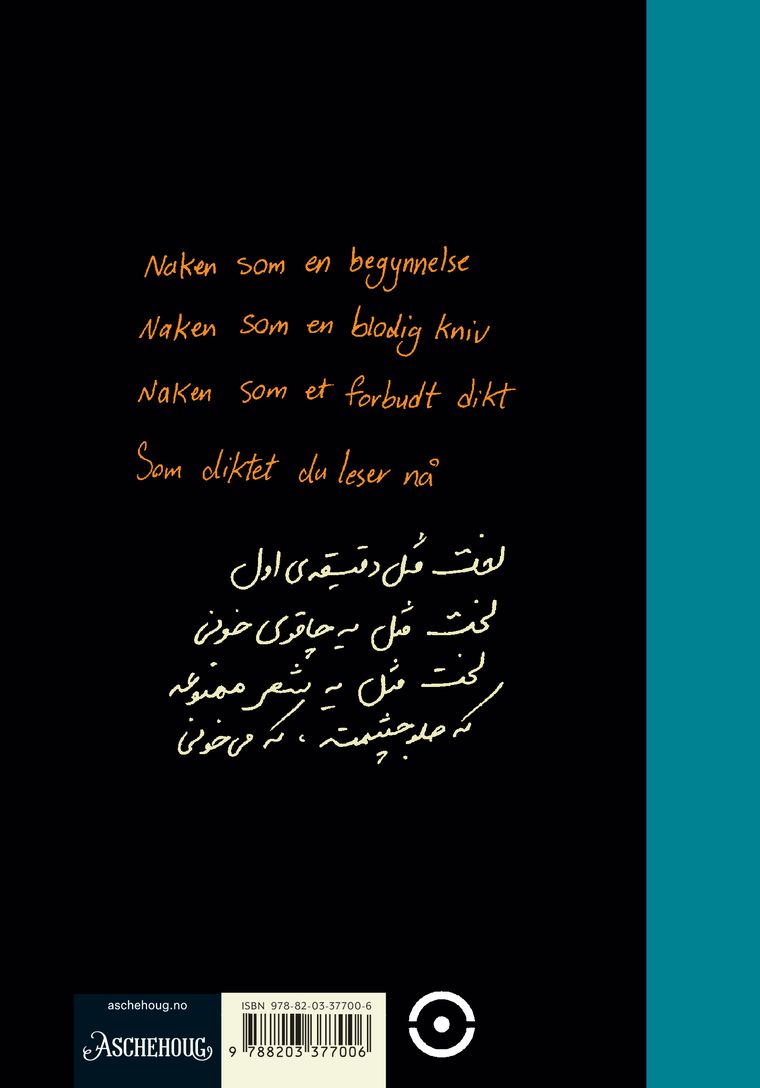 Naken som en begynnelse
Naken som en blodig kniv
Naken som et forbudt dikt
Som diktet du leser nå
لخت مُثل دقیقه‌ی اول
لخت مُثل یه چاقوی خونی
لخت مثل یه شعر ممنوعه
که جلو چشمته ، که می‌خونی
aschehoug.no
ASCHEHOUG
ISBN 978-82-03-37700-6
9 788203 377006